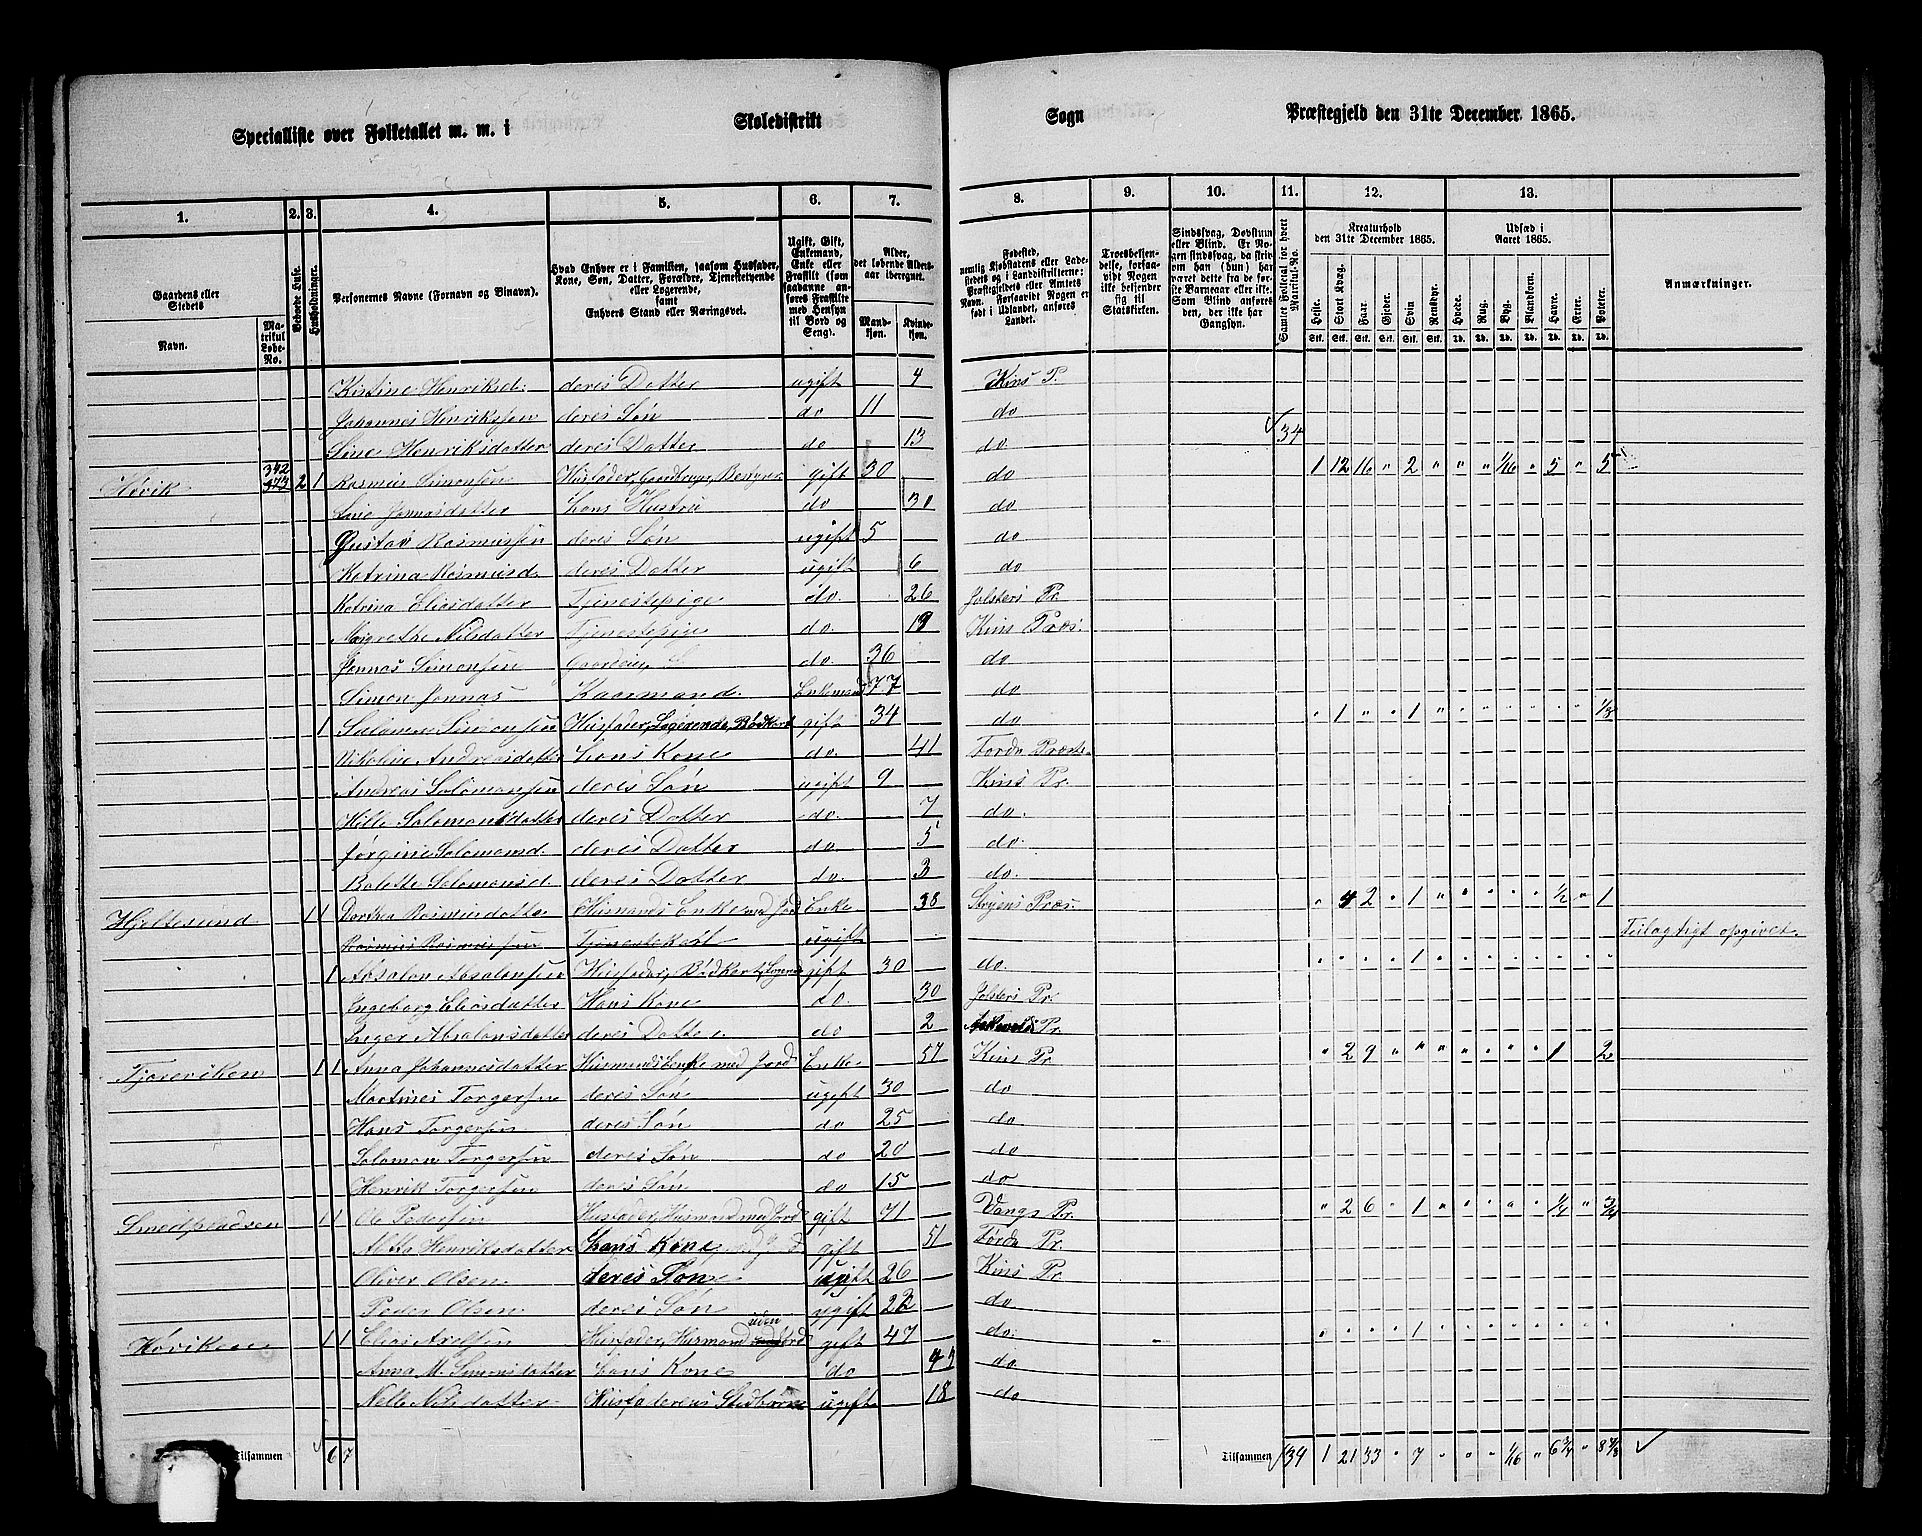 Specialliste over Folketallet m. m. i Skoledistrikt Sogn Præstegjeld den 31te December 1865.
1. 2. 3. 4. 5. 6. 7. 8. 9. 10. 11. 12. 13.
Gaardens eller Stedets Navn. Matrikul Løbe-No. Beboede Huse. Husholdninger. Personernes Navne (Fornavn og Binavn). Hvad Enhver er i Familien, saasom Husfader, Kone, Søn, Datter, Forældre, Tjenestetyende eller Logerende, samt Enhvers Stand eller Næringsvei. Ugift, Gift, Enkemand, Enke eller Fraskilt (som saadanne anføres Fraskilte med Hensyn til Bord og Seng). Alder, det løbende Aldersaar iberegnet. Mandkjøn. Kvindekjøn.
Fødested, nemlig Kjøbstadens eller Ladestedets og i Landdistrikterne: Præstegjeldets eller Amtets Navn. Forsaavidt Nogen er født i Udlandet, anføres Landet. Troesbekjendelse, forsaavidt Nogen ikke bekjender sig til Statskirken. Sindssvag, Døvstum eller Blind. Er Nogen sindssvag, da skrives om han (hun) har været dette fra de første Barneaar eller ikke. Som Blind anføres den, der ikke har Gangsyn. Samlet Folketal for hvert Matrikul-No. Kreaturhold den 31te December 1865. Udsæd i Aaret 1865. Anmærkninger.
Heste. Stort Kvæg. Faar. Gjeder. Svin. Rensdyr. Hvede. Rug. Byg. Blandkorn. Havre. Erter. Poteter.
Stk. Stk. Stk. Stk. Stk. Stk. Td. Td. Td. Td. Td. Td. Td.
Kistine Henriksd. deres Datter ugift 4 Kins P.
Johannes Henriksen deres Søn do 11 do
Sine Henriksdatter deres Datter do 13 do 34
Høvik 342 2 1 Rasmus Simonsen Husfader, Gaardbruger Bestyrer gift 30 do 1 12 16 " 2 " " " 1/16 " 5 " 5
Sine Jonnasdatter hans Hustru do 30 do
Gustav Rasmussen deres Søn ugift 5 do
Katrina Rasmusd. deres Datter ugift 6 do
Katrina Eliasdatter Tjenestepige do. 26 Jolsters Pr.
Margrethe Nilsdatter Tjenestepige do. 19 Kins Præs.
Jonnas Simonsen do. 36 do
Simon Jonnas Kaarmand Enkemand 77 do
1 Salomon Simonsen Husfader, Logerende, Bødkert gift 34 do " 1 " " 1 " " " " " " " 1/8
Nikoline Andreasdatter hans Kone do. 41 Førde Præste
Andreas Salomonsen deres Søn ugift 9 Kins Pr.
Hille Salomonsdatter deres Datter do. 7 do.
Jørgine Salomonsd. deres Datter do. 5 do.
Bolette Salomonsd. deres Datter do. 3 do.
Hjeltesund 1 1 Dorthea Rasmusdatter Husmands Enke med Jord Enke 38 Stryens Præs. " 4 2 " 1 " " " " " 1/2 " 1
Rasmus Rasmussen Tjenestekarl ugift Feilagtigt opgivet.
1 Absalon Absalonsen Husfader, Bødkert, Logerende gift 30 do. " " " " 1 " " " " " " " "
Ingeborg Eliasdatter Hans Kone do. 30 Jolsters Pr.
Inger Absalonsdatter deres Datter do 2 Askevolds Pr.
Tjoreviken 1 1 Anna Johannesdatter Husmandsenke med Jord Enke 57 Kins Pr. " 2 9 " " " " " " " 1 " 2
Martines Torgersen deres Søn ugift 30 do
Hans Torgersen deres Søn do 25 do
Salomon Torgersen deres Søn do 20 do
Henrik Torgersen deres Søn do 15 do
Smedpladsen 1 1 Ole Pedersen Husfader, Husmand med Jord gift 71 Vangs Pr. " 2 6 " 1 " " " " " 1/4 " 3/4
Henriksdatter hans Kone gift 51 Førde Pr.
Oliver Olsen deres Søn ugift 26 Kins Pr
Peder Olsen deres Søn ugift 22 do
Høviken 1 1 Elias Husfader, Husmand uden Jord gift 47 do. " " " " 1 " " " " " " " "
Anna M. Simonsdatter hans Kone do do
Nelle Nilsdatter Husfaderens Stedbørn ugift 18 do
Tilsammen 6 7 Tilsammen 34 1 21 33 " 7 " " " 1/16 " 6 3/4 " 8 7/8